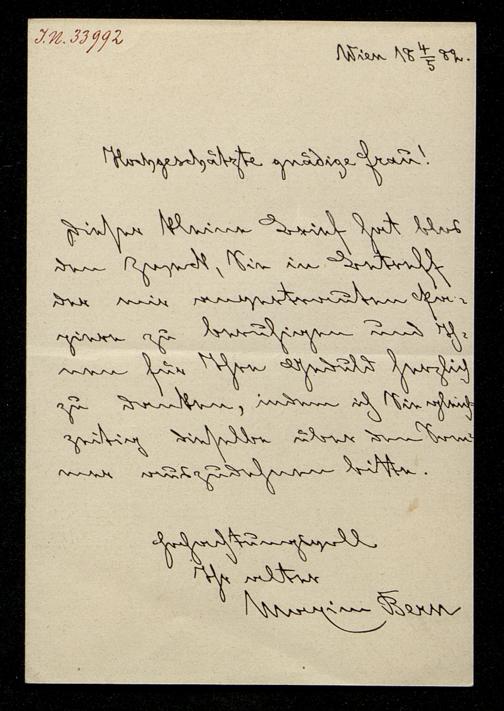 I.N. 33992
Wien 18 4/5 82.
Hochgeschätzte gnädige Frau!
Dieser kleine Brief hat blos
den Zweck, Sie in Betreff
der mir anvertrauten Pa-
piere zu beruhigen und Ih-
nen für Ihre Geduld herzlich
zu danken, indem ich Sie gleich-
zeitig dieselbe über den Som-
mer auszudehnen bitte.
Hochachtungsvoll
Ihr alter
Maxim Bern